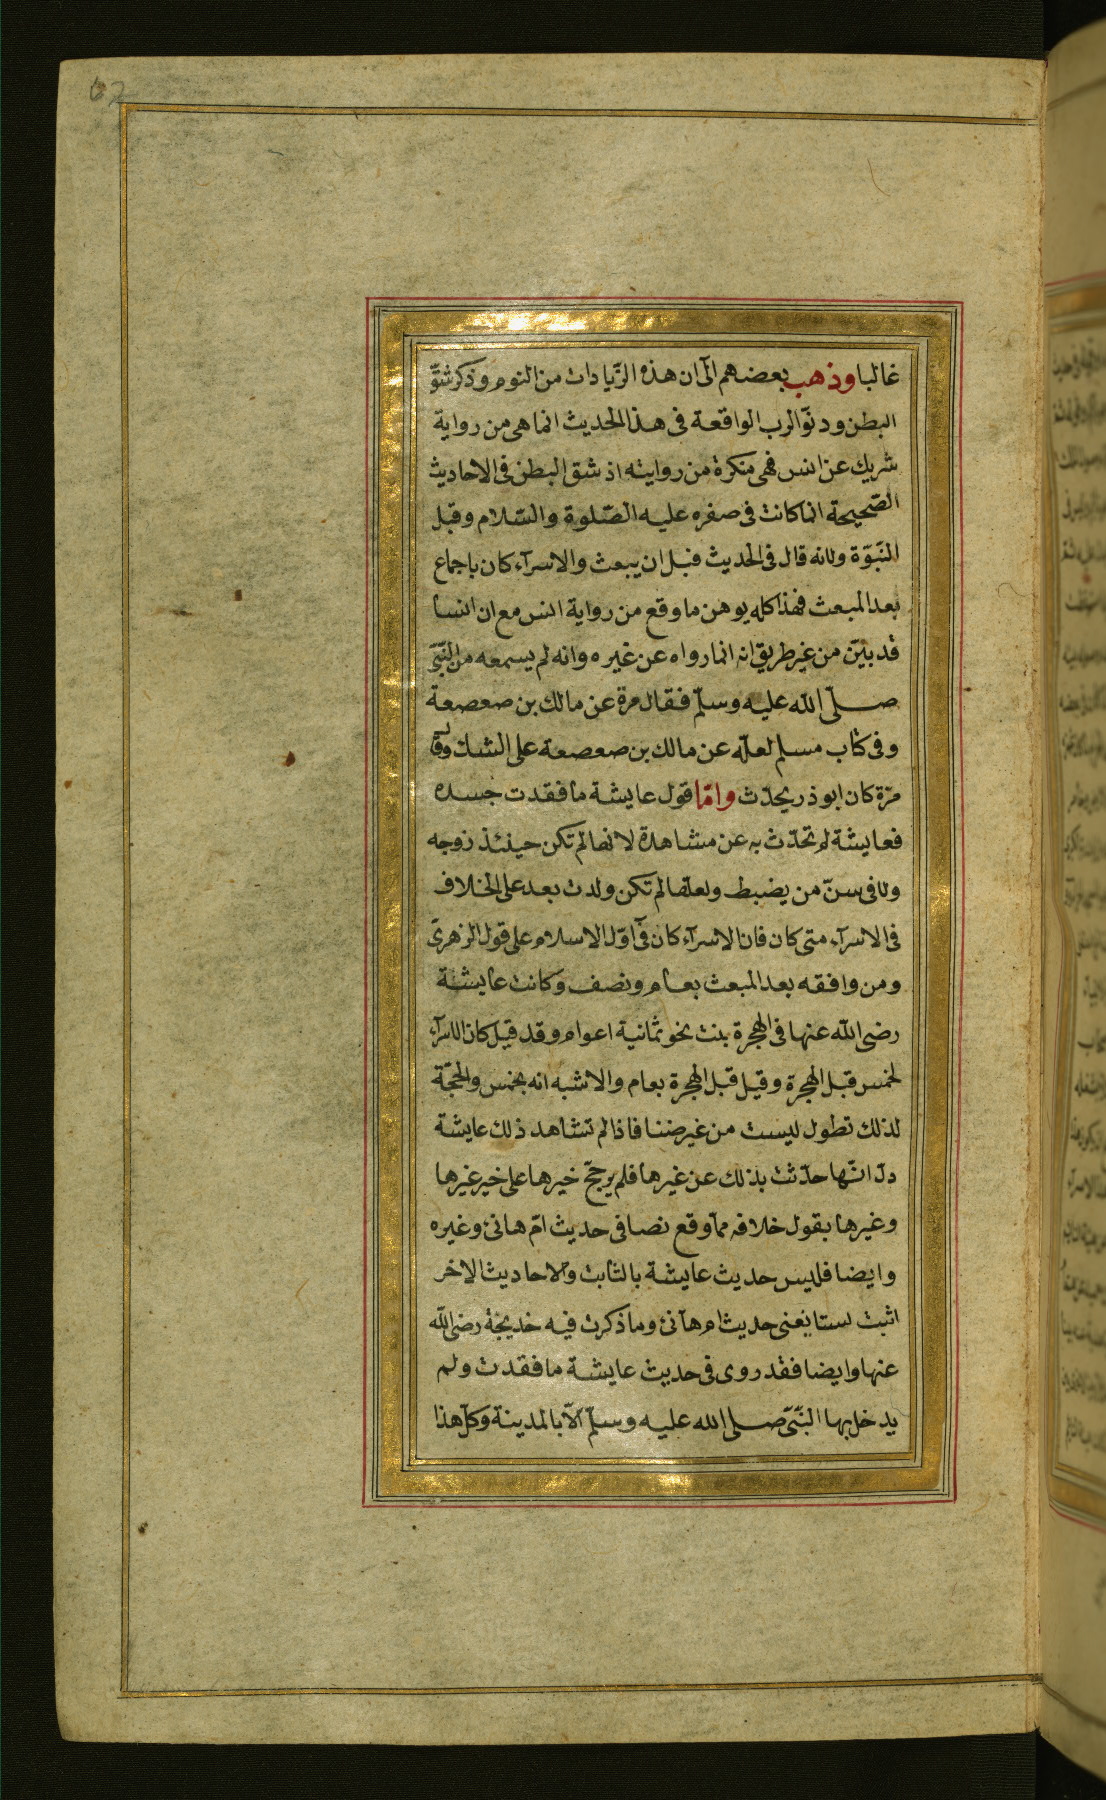 62
غالبا وذهب بعضهم الى ان هذه الزّيادات من النوم وذكر شقّ
البطن ودنوّ الرب الواقعة فى هذا الحديث انما هى من رواية
شريك عن انس فهى منكرة من روايته اذ شق البطن فى الاحاديث
الصّحيحة انما كانت فى صغره عليه الصّلوة والسّلام وقبل
النبوّة ولانه قال فى الحديث قبل ان يبعث والاسرآء كان باجماع
بعد المبعث فهذا كله يوهن ما وقع من رواية انس مع ان انسا
قد بيّن من غير طريق انه انما رواه عن غيره وانه لم يسمعه من النّبىّ
صلى الله عليه وسلّم فقال مرة عن مالك بن صعصعة
وفى كتاب مسلم لعلّه عن مالك بن صعصعة على الشك وقال
مرّة كان ابو ذر يحدّث وامّا قول عايشة ما فقدت جسده
فعايشة لم تحدّث به عن مشاهدة لانها لم تكن حينئذ زوجه
ولا فى سنّ من يضبط ولعلها لم تكن ولدت بعد على الخلاف
فى الاسرآء متى كان فان الاسرآء كان فى اوّل الاسلام على قول الزهرىّ
ومن وافقه بعد المبعث بعام ونصف وكانت عايشة
رضى الله عنها فى الهجرة بنت نحو ثمانية اعوام وقد قيل كان الاسرآء
لخمس قبل الهجرة وقيل قبل الهجرة بعام والاشبه انه بخمس والحجّة
لذلك تطول ليست من غرضنا فاذا لم تشاهد ذلك عايشة
دلّ انّها حدّثت بذلك عن غيرها فلم يرجّح خبرها على خبر غيرها
وغيرها يقول خلافه مما وقع نصا فى حديث امّ هانئ وغيره
وايضا فليس حديث عايشة بالثابت والاحاديث الاخر
اثبت لسنا نعنى حديث ام هآنئ وما ذكرت فيه خديجة رضى الله
عنها وايضا فقد روى فى حديث عايشة ما فقدت ولم
يدخل بها النّبىّ صلى الله عليه وسلّم الّا بالمدينة وكلّ هذا